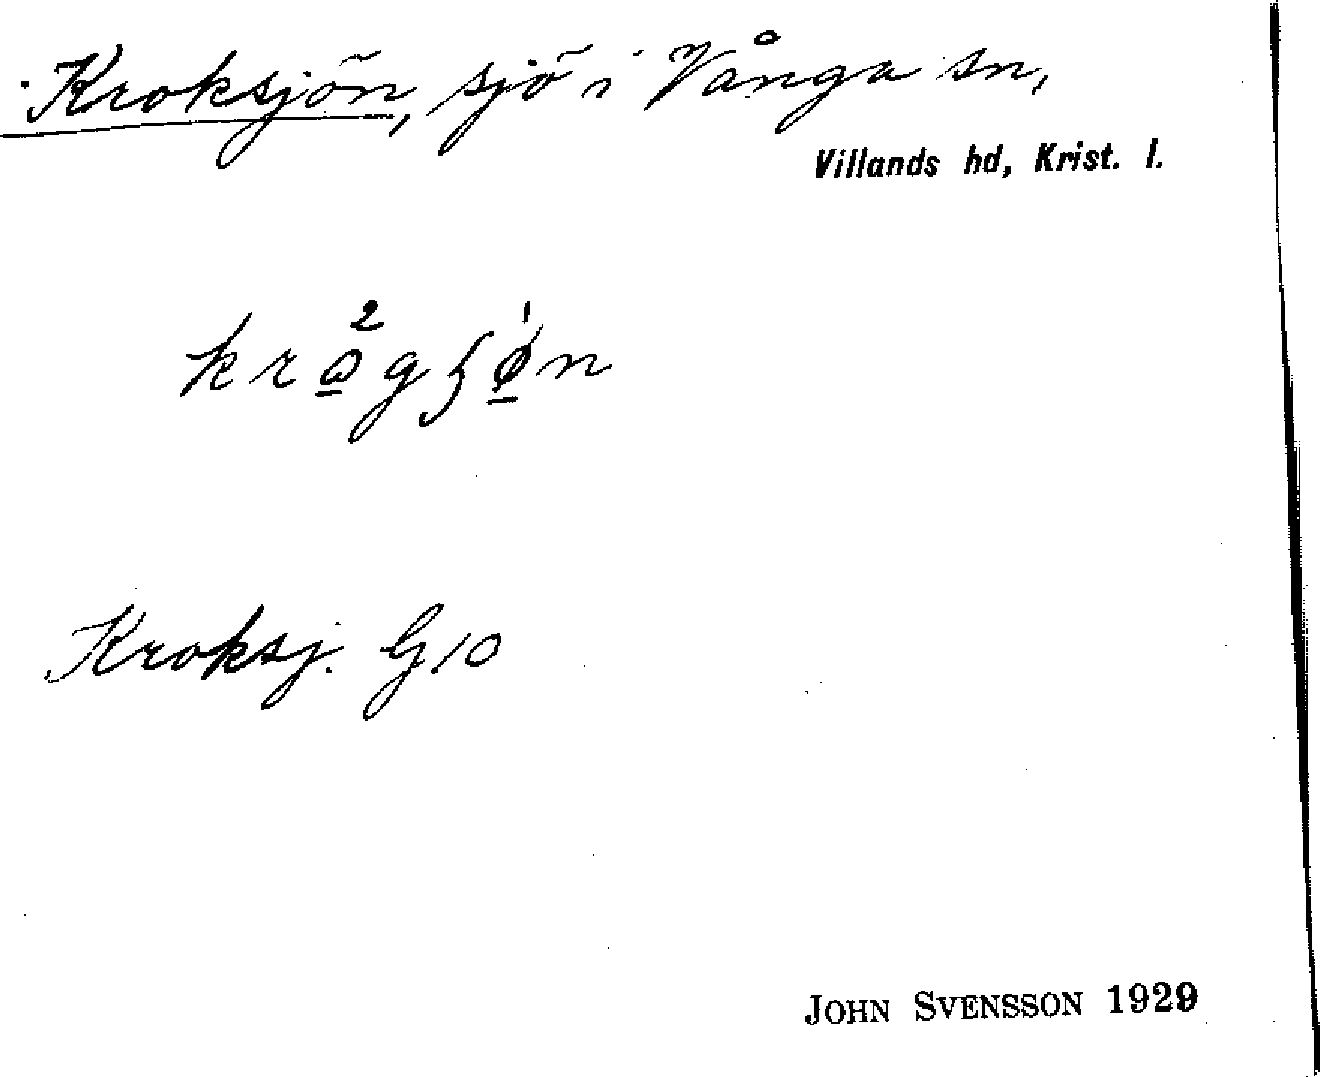 Kroksjön, sjö i Vånga sn,
Villands hd, Krist. l.
Kroksj. G10
JOHN SVENSSON 1929